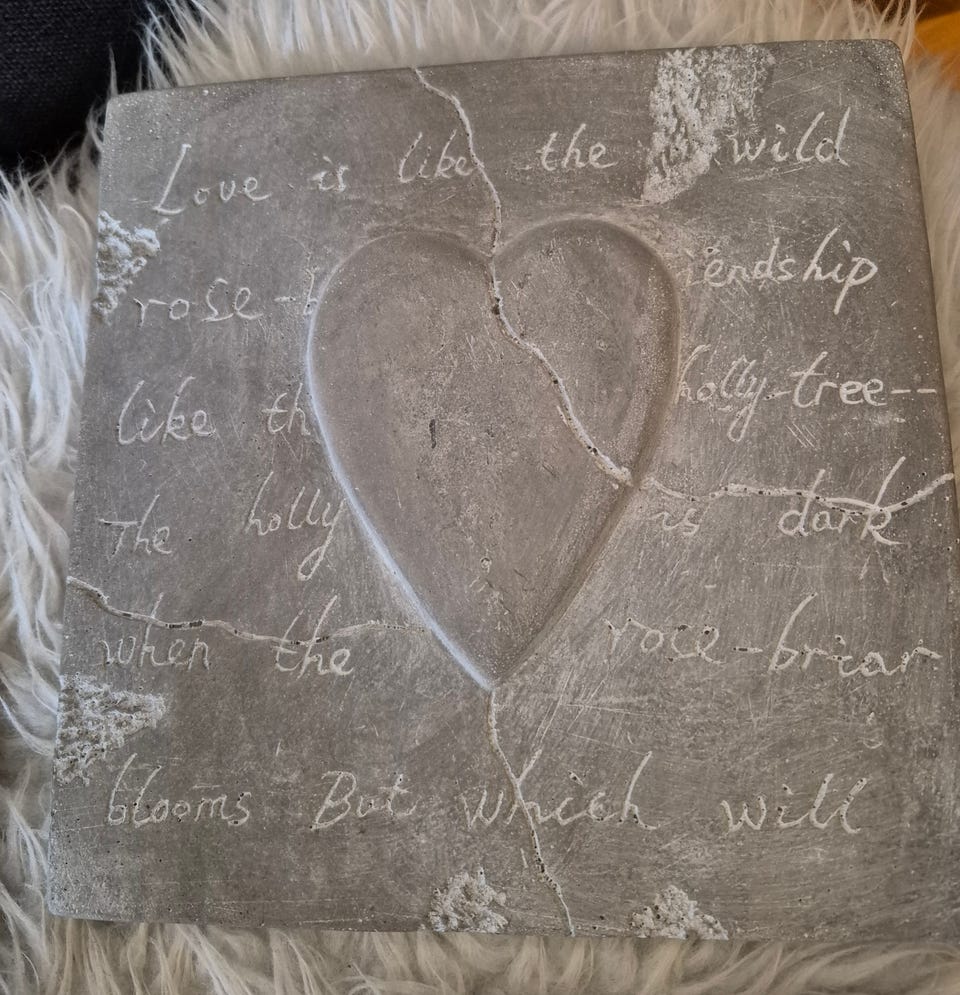 Love is like the wild
rose-b endship
like th holly-tree--
The holly is dark
when the rose-briar
blooms But which will